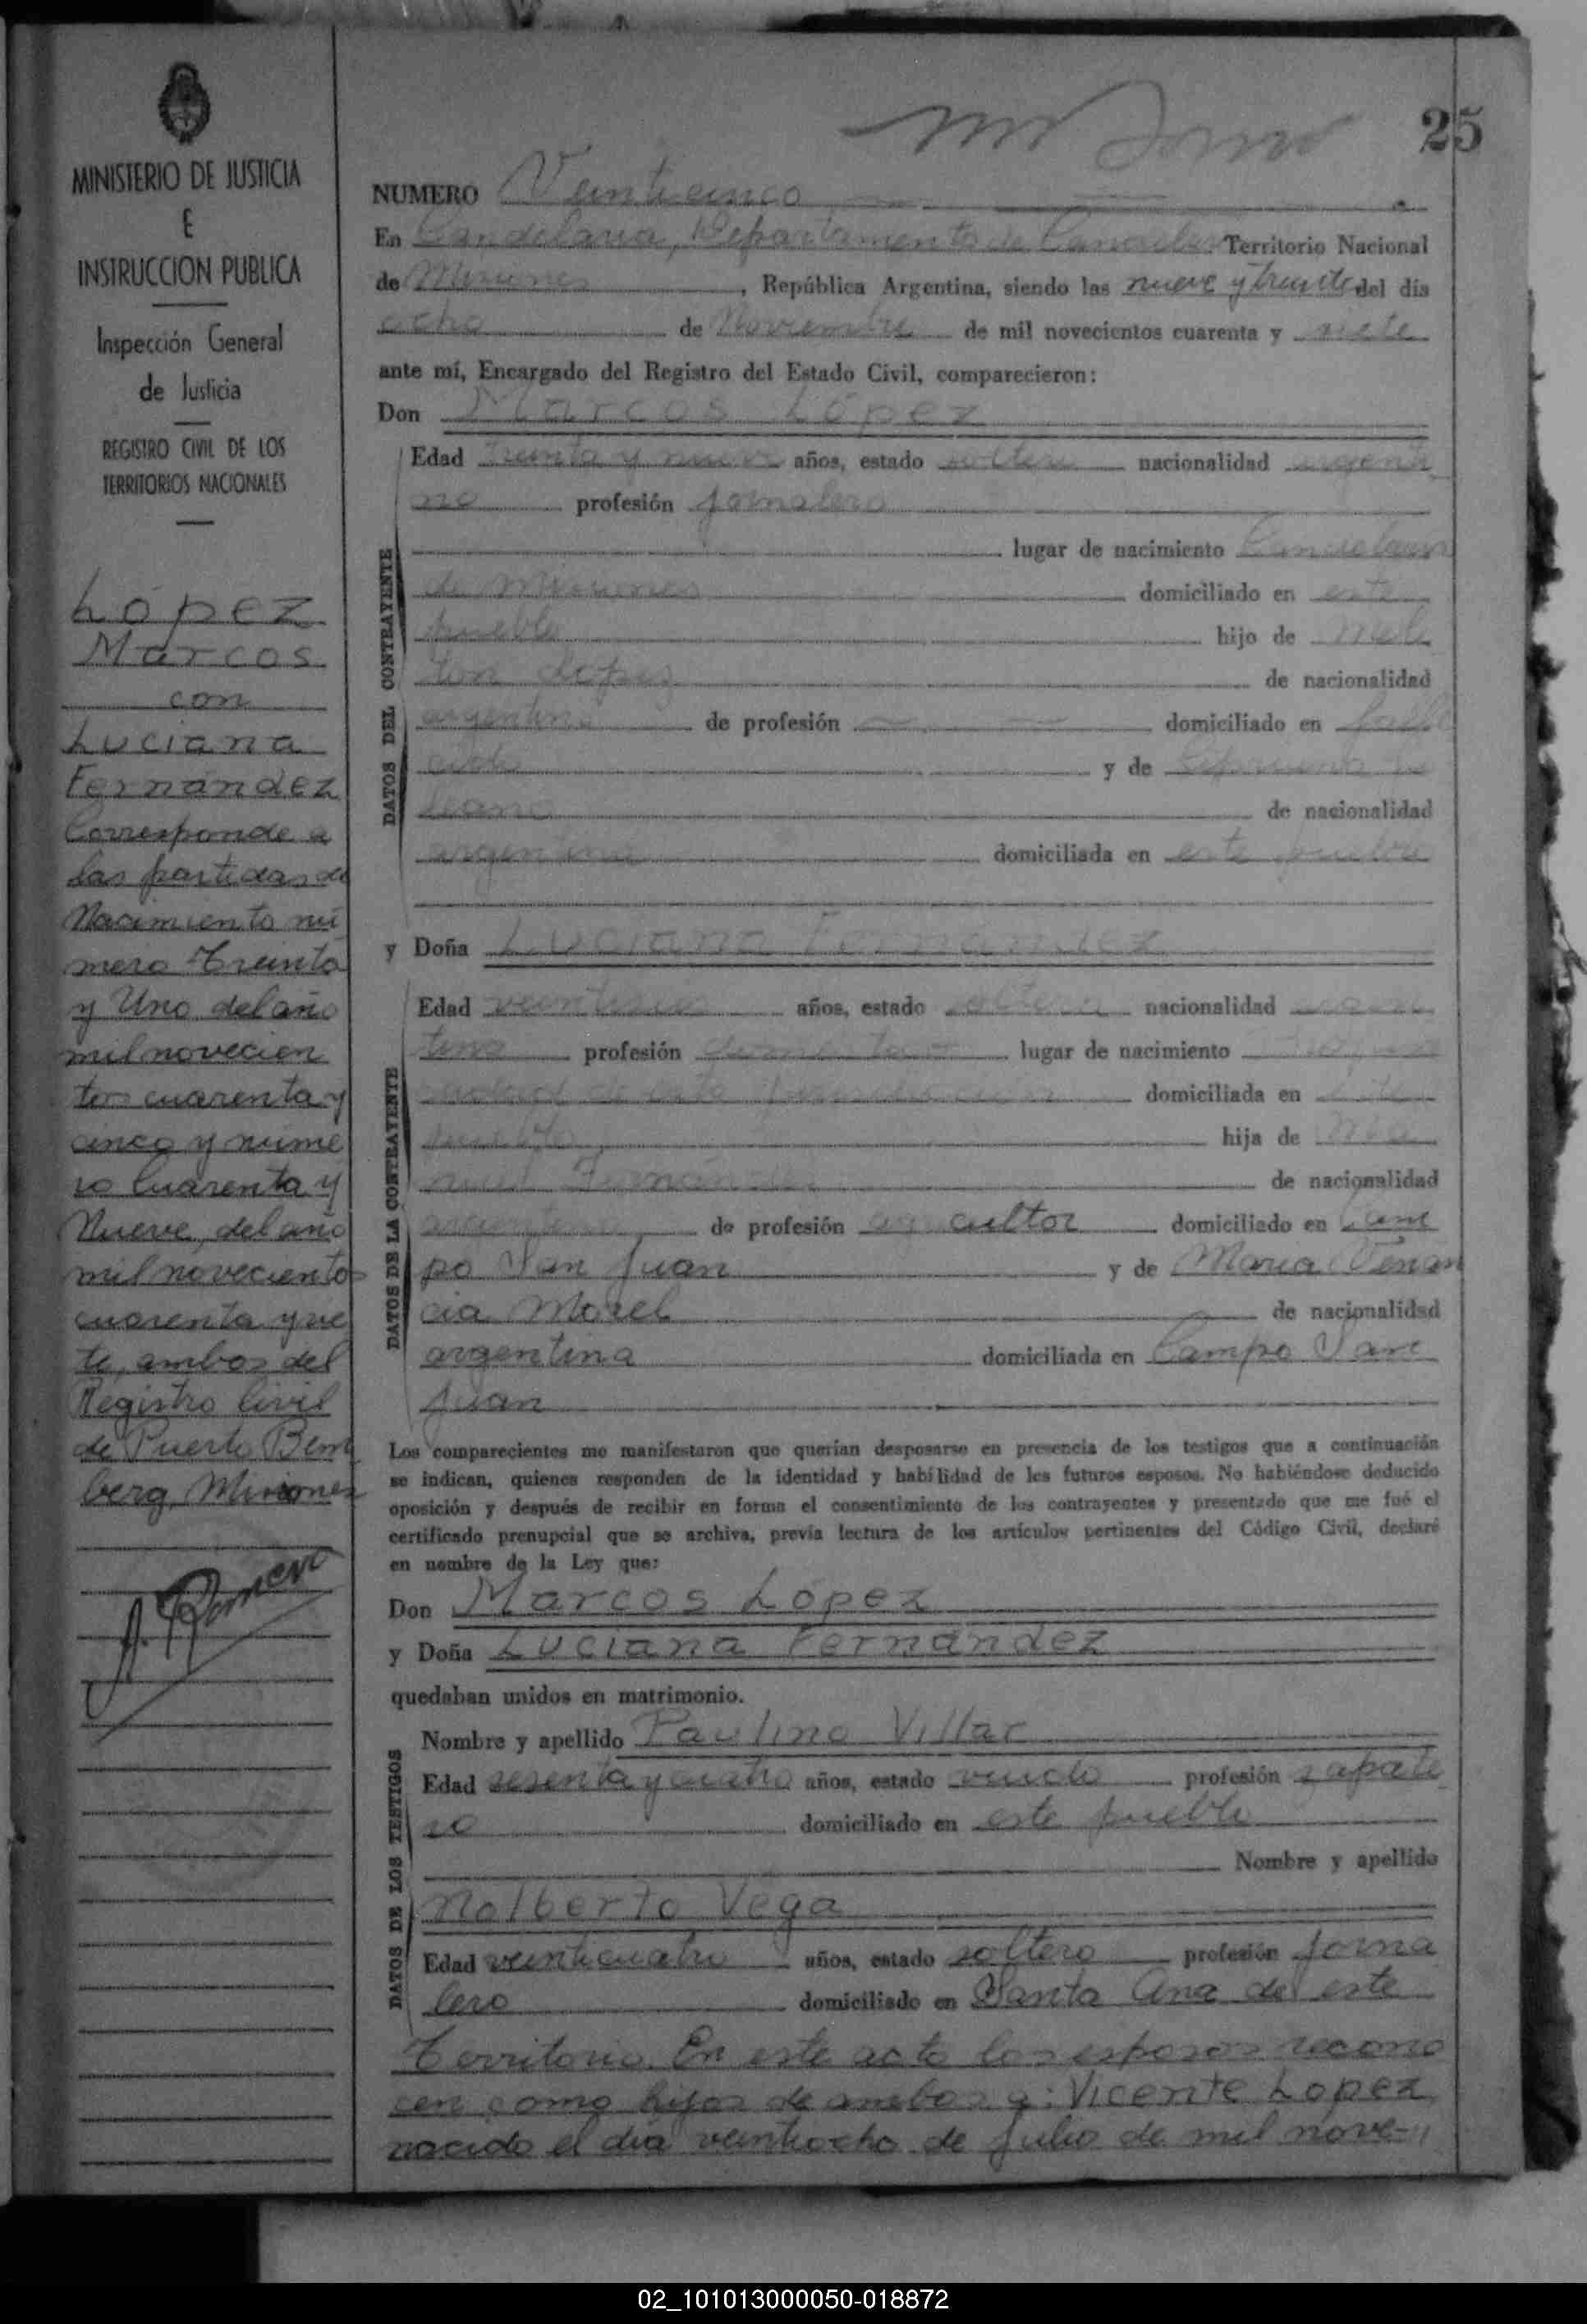 MINISTERIO DE JUSTICIA
E
INSTRUCCION PUBLICA
Inspección General
de Justicia
REGISTRO CIVIL DE LOS
TERRITORIOS NACIONALES
López
Marcos
con
Luciana
Fernández
Corresponde a
las partidas de
Nacimiento nú
mero Treinta
y Uno del año
mil novecien
tos cuarenta y
cinco y núme
ro Cuarenta y
Nueve, del año
mil novecientos
cuarenta y sie
te, ambos del
Registro Civil
de Puerto Bem
berg, Misiones
25
NUMERO Veinticinco
En Candelaria, Departamento de Candelaria Territorio Nacional
de Misiones, República Argentina, siendo las nueve y treinta del día
ocho de Noviembre de mil novecientos cuarenta y siete
ante mí, Encargado del Registro del Estado Civil, comparecieron:
Don Marcos López
DATOS DEL CONTRAYENTE
Edad treinta y nueve años, estado soltero nacionalidad argenti
no profesión jornalero
lugar de nacimiento Candelaria
de Misiones domiciliado en este
pueblo hijo de Meli
ton López de nacionalidad
argentina de profesión domiciliado en falle
cido y de
de nacionalidad
argentina domiciliada en este pueblo
y Doña Luciana Fernández
DATOS DE LA CONTRAYENTE
Edad años, estado soltera nacionalidad argen
tina profesión lugar de nacimiento
de esta jurisdicción domiciliada en este
pueblo hija de Ma
nuel Fernández de nacionalidad
argentina de profesión agricultor domiciliado en Cam
po San Juan y de María Venan
cia Morel de nacionalidad
argentina domiciliada en Campo San
Juan
Los comparecientes me manifestaron que querían desposarse en presencia de los testigos que a continuación
se indican, quienes responden de la identidad y habilidad de los futuros esposos. No habiéndose deducido
oposición y después de recibir en forma el consentimiento de los contrayentes y presentado que me fué el
certificado prenupcial que se archiva, previa lectura de los artículos pertinentes del Código Civil, declaré
en nombre de la Ley que:
Don Marcos López
y Doña Luciana Fernández
quedaban unidos en matrimonio.
DATOS DE LOS TESTIGOS
Nombre y apellido Paulino Villar
Edad sesenta y cuatro años, estado viudo profesión zapate
ro domiciliado en este pueblo
Nombre y apellido
Nolberto Vega
Edad veinticuatro años, estado soltero profesión jorna
lero domiciliado en Santa Ana de este
Territorio. En este acto los esposos recono
cen como hijos de ambos a: Vicente Lopez
nacido el día veintiocho de Julio de mil nove-
02_101013000050-018872